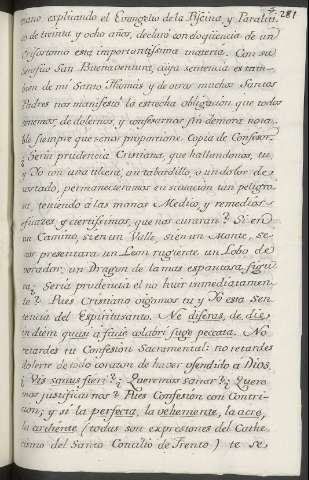 281
mano explicando el Evangelio de la Piscina, y Paraliti-
co de treinta y ocho años, declaró con eloqüencia de un
Crisostomo esta importantissima materia. Con su
San Buenaventura, cuya sentencia es tam-
bien de mi Santo Thomàs y de otros muchos Santos
Padres nos manifestó la estrecha obligacion que todos
tenemos, de dolernos, y confesarnos sin demora nota-
ble siempre que se nos proporcione Copia de Confesor.
¿Seria prudencia Cristiana, que hallandonos, tu,
y Yo con una ulcera, un tabardillo, o un dolor de
costado, permanecieramos en situacion tan peligro-
sa, teniendo a las manos Medico, y remedios
eficazes, y ciertissimos, que nos curaran? Si en
un Camino, si en un Valle, si en un Monte, se
nos presentara un Leon rugiente, un Lobo de-
vorador, un Dragon de la mas espantosa figu-
ra; Seria prudencia el no huir inmediatamen-
te? Pues Cristiano oigamos tu, y Yo esta sen-
tencia del Espiritusanto. Ne diferas, de die
in diem quasi à facie colubri fuge peccata. No
retardes tu Confesion Sacramental: no retardes
dolerte de todo corazon de haver ofendido a Dios.
¿Vis sanus fieri? ¿Queremos sanar? ¿Quere-
mos justificarnos? Pues Confesion con Contri-
cion; y si la perfecta, la vehemente, la acre,
la ardiente (todas son expresiones del Cathe-
cismo del Santo Concilio de Trento) te se